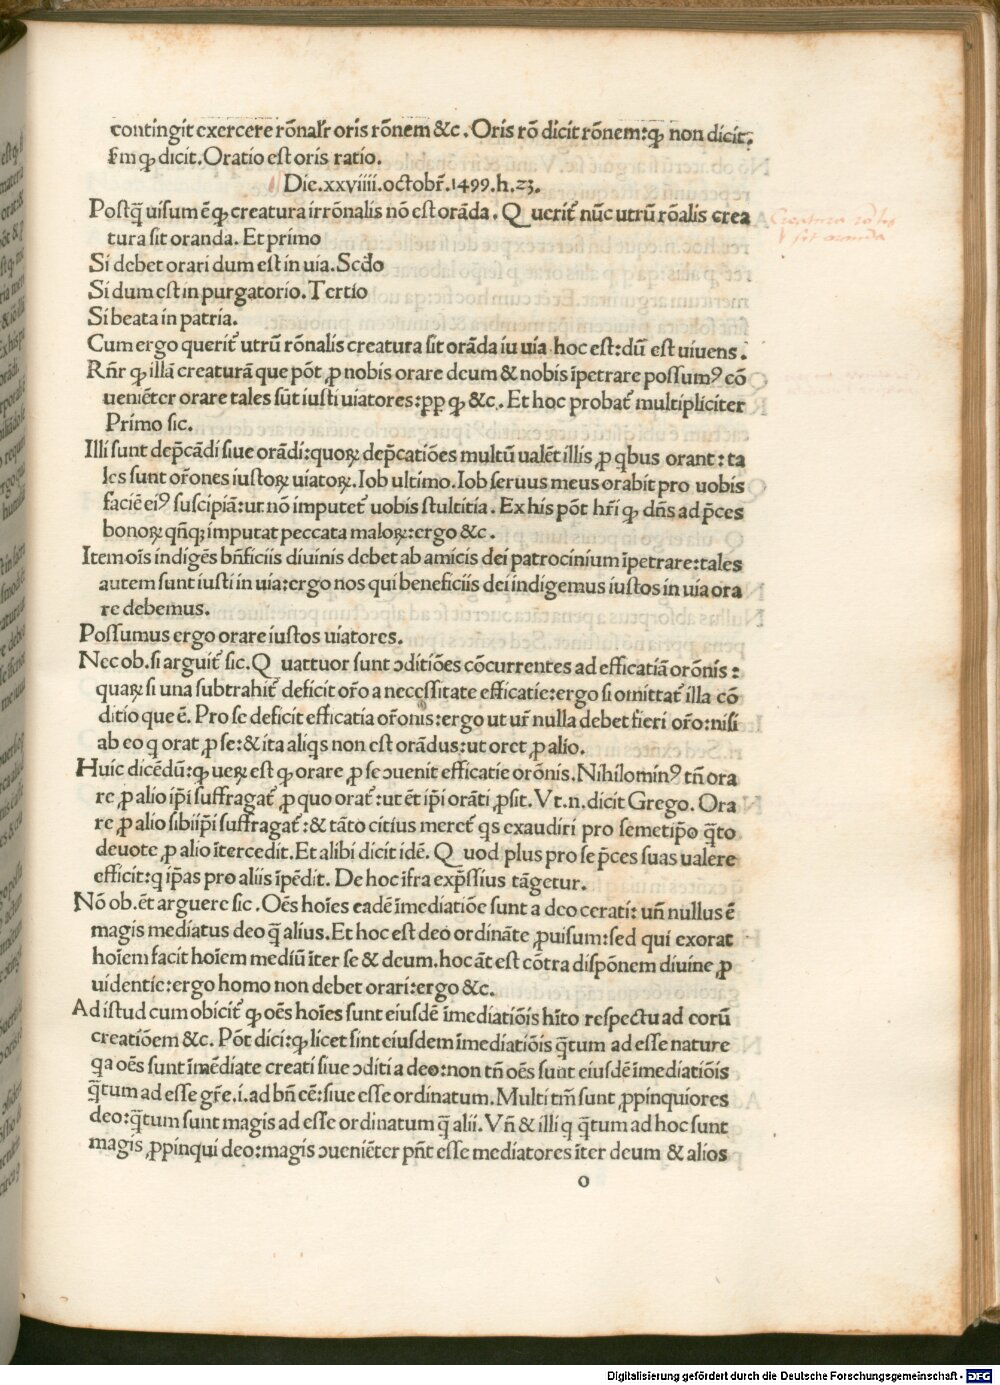 contingit exercere rõnalr̃ oris rõnem &c. Oris rõ dicit rõnem: ꝙ non dicit.
ẜm ꝙ dicit. Oratio est oris ratio.
Die. xxviiii. octobr̃. 1499. h. 23.
Postq̃ uisum ẽ ꝙ creatura irrõnalis nõ est orãda. Q uerit̃ nũc utrũ rõalis crea
tura sit oranda. Et primo
Si debet orari dum est in uia. Scđo
Si dum est in purgatorio. Tertio
Si beata in patria.
Cum ergo querit̃ utrũ rõnalis creatura sit orãda iu uia hoc est: dũ est uiuens.
Rñr ꝙ illã creaturã que põt ꝓ nobis orare deum & nobis ĩpetrare possumꝰ cõ
ueniẽter orare tales sũt iusti uiatores: ꝓp ꝙ &c. Et hoc probat̃ multipliciter
Primo sic.
Illi sunt dep̃cãdi siue orãdi: quoꝝ dep̃catiões multũ ualẽt illis ꝓ qbus orant: ta
les sunt or̃ones iustoꝝ uiatoꝝ. Iob ultimo. Iob seruus meus orabit pro uobis
faciẽ eiꝰ suscipiã: ut nõ imputet̃ uobis stultitia. Ex his põt hr̃i ꝙ dñs ad p̃ces
bonoꝝ qñqꝫ imputat peccata maloꝝ: ergo &c.
Item oĩs indigẽs bñficiis diuinis debet ab amicis dei patrocinium ĩpetrare: tales
autem sunt iusti in uia: ergo nos qui beneficiis dei indigemus iustos in uia ora
re debemus.
Possumus ergo orare iustos uiatores.
Nec ob. si arguit̃ sic. Q uattuor sunt ↄditiões cõcurrentes ad efficatiã orõnis:
quaꝝ si una subtrahit̃ deficit or̃o a necessitate efficatie: ergo si omittat̃ illa cõ
ditio que ẽ. Pro se deficit efficatia or̃onis: ergo ut ur̃ nulla debet fieri or̃o: nisi
ab eo q orat ꝓ se: & ita aliqs non est orãdus: ut oret ꝓ alio.
Huic dicẽdũ: ꝙ ueꝝ est ꝙ orare ꝓ se ↄuenit efficatie orõnis. Nihilominꝰ tñ ora
re ꝓ alio ip̃i suffragat̃ ꝓ quo orat̃: ut ẽt ip̃i orãti ꝓsit. Vt. n. dicit Grego. Ora
re ꝓ alio sibiip̃i suffragat̃: & tãto citius meret̃ qs exaudiri pro semetip̃o q̃to
deuote ꝓ alio ĩtercedit. Et alibi dicit idẽ. Q uod plus pro se p̃ces suas ualere
efficit: q ip̃as pro aliis ĩpẽdit. De hoc ĩfra exp̃ssius tãgetur.
Nõ ob. ẽt arguere sic. Oẽs hoĩes eadẽ ĩmediatiõe sunt a deo cerati: uñ nullus ẽ
magis mediatus deo q̃ alius. Et hoc est deo ordinãte ꝓuisum: sed qui exorat
hoĩem facit hoĩem mediũ ĩter se & deum. hoc ãt est cõtra dispõnem diuine ꝓ
uidentie: ergo homo non debet orari: ergo &c.
Ad istud cum obicit̃ ꝙ oẽs hoĩes sunt eiusdẽ ĩmediatiõis hĩto respectu ad eorũ
creatiõem &c. Põt dici: ꝙ licet sint eiusdem ĩmediatiõis q̃tum ad esse nature
qa oẽs sunt ĩmẽdiate creati siue ↄditi a deo: non tñ oẽs sunt eiusdẽ ĩmediatiõis
q̃tum ad esse gr̃e. i. ad bñ cẽ: siue esse ordinatum. Multi tm̃ sunt ꝓpinquiores
deo: q̃tum sunt magis ad esse ordinatum q̃ alii. Vñ & illi q q̃tum ad hoc sunt
magis ꝓpinqui deo: magis ↄueniẽter pñt esse mediatores ĩter deum & alios
o
Creatura
sit oranda
Digitalisierung gefördert durch die Deutsche Forschungsgemeinschaft - DFG